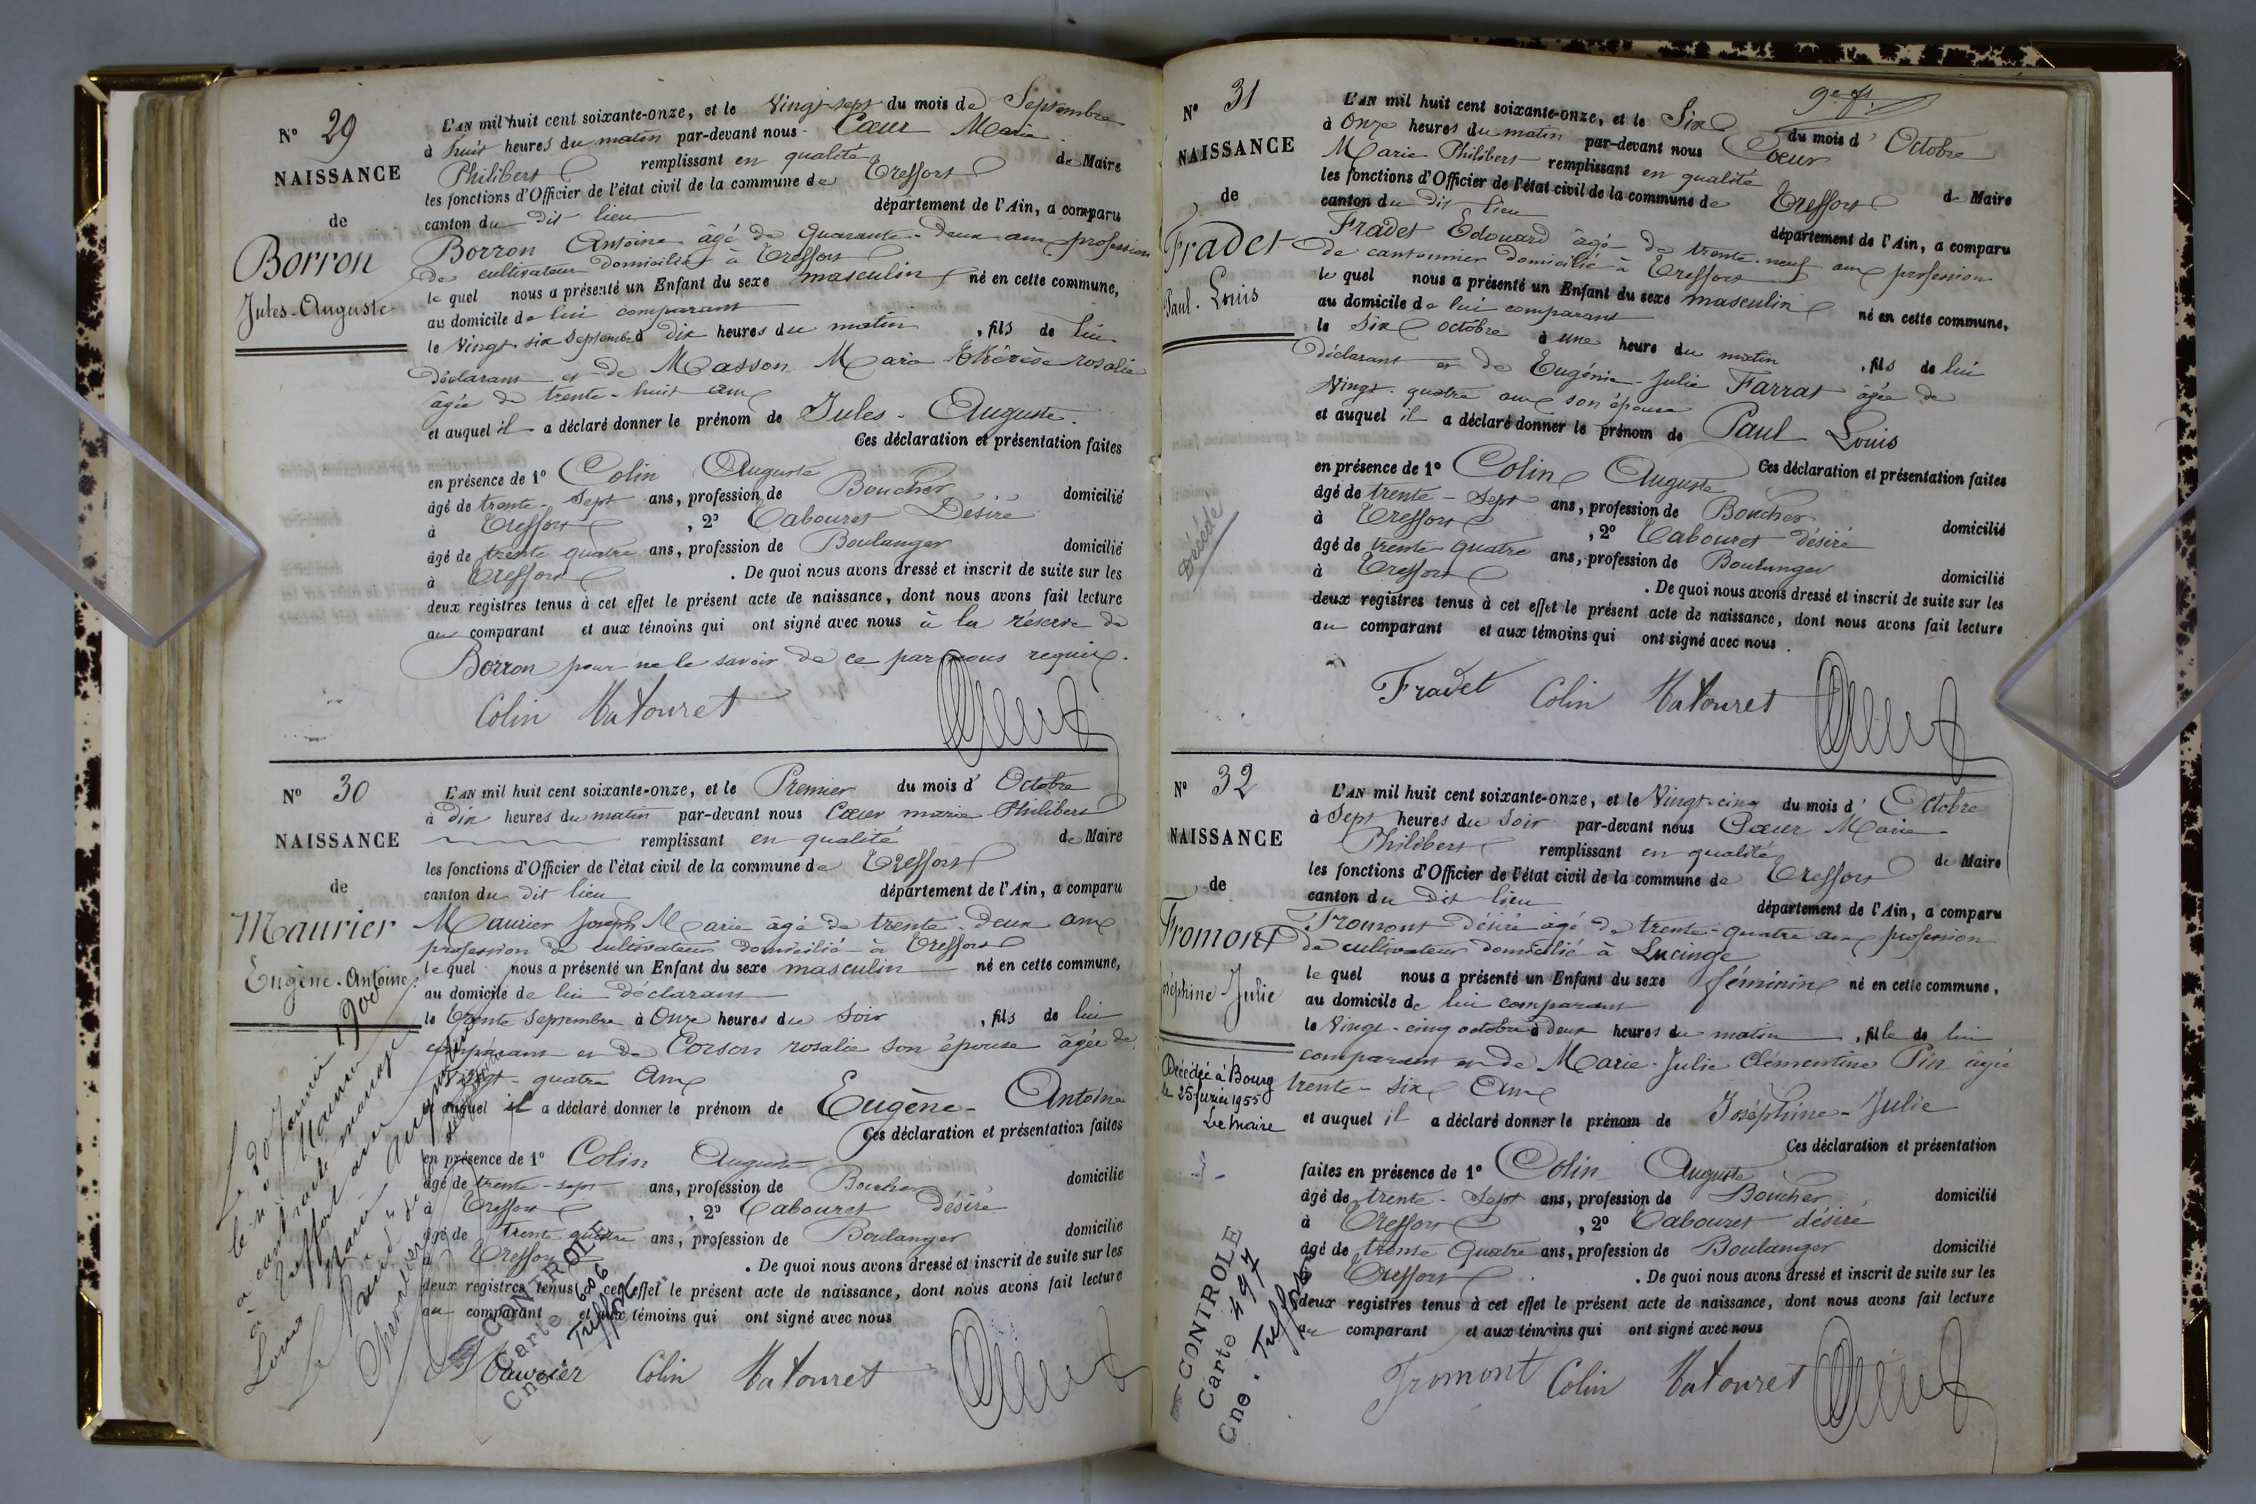 N° 29
NAISSANCE
de
Borron
Jules-Auguste
L'AN mil huit cent soixante-onze, et le Vingt-sept du mois de Septembre
à huit heures du matin par-devant nous Cœur Marie
Philibert remplissant en qualité de Maire
les fonctions d'Officier de l'état civil de la commune de Treffort
canton du dit lieu département de l'Ain, a comparu
Borron Antoine âgé de quarante-deux ans profession
de cultivateur domicilié à Treffort
le quel nous a présenté un Enfant du sexe masculin né en cette commune,
au domicile de lui comparant
le Vingt-six Septembre à dix heures du matin , fils de lui
déclarant et de Masson Marie Thérèse rosalie
âgée de trente-huit ans
et auquel il a déclaré donner le prénom de Jules-Auguste.
Ces déclaration et présentation faites
en présence de 1° Colin Auguste
âgé de trente-sept ans, profession de Boucher domicilié
à Treffort , 2° Cabouret Désiré
âgé de trente quatre ans, profession de Boulanger domicilié
à Treffort . De quoi nous avons dressé et inscrit de suite sur les
deux registres tenus à cet effet le présent acte de naissance, dont nous avons fait lecture
au comparant et aux témoins qui ont signé avec nous à la réserve de
Borron pour ne le savoir de ce par nous requis.
Colin
N° 30
NAISSANCE
de
Maurier
Eugène-Antoine
L'AN mil huit cent soixante-onze, et le Premier du mois d' Octobre
à dix heures du matin par-devant nous Cœur marie Philibert
remplissant en qualité de Maire
les fonctions d'Officier de l'état civil de la commune de Treffort
canton du dit lieu département de l'Ain, a comparu
Maurier Joseph Marie âgé de trente-deux ans
profession de cultivateur domicilié à Treffort
le quel nous a présenté un Enfant du sexe masculin né en cette commune,
au domicile de lui déclarant
le trente Septembre à Onze heures du soir , fils de lui
comparant et de Corson rosalie son épouse âgée de
vingt-quatre ans
et auquel il a déclaré donner le prénom de Eugène-Antoine
Ces déclaration et présentation faites
en présence de 1° Colin Auguste
âgé de trente-sept ans, profession de Boucher domicilié
à Treffort , 2° Cabouret désiré
âgé de trente quatre ans, profession de Boulanger domicilié
à Treffort . De quoi nous avons dressé et inscrit de suite sur les
deux registres tenus à cet effet le présent acte de naissance, dont nous avons fait lecture
au comparant et aux témoins qui ont signé avec nous
Le 20 Janvier 1900
a contracté mariage
à Treffort avec
Le Maire
CONTROLE
Carte 606
Cne. Treffort
Maurier Colin
N° 31
NAISSANCE
de
Fradet
Paul-Louis
Décédé
L'AN mil huit cent soixante-onze, et le Six du mois d' Octobre
à Onze heures du matin par-devant nous Cœur
Marie Philibert remplissant en qualité de Maire
les fonctions d'Officier de l'état civil de la commune de Treffort
canton du dit lieu département de l'Ain, a comparu
Fradet Edouard âgé de trente-neuf ans profession
de cantonnier domicilié à Treffort
le quel nous a présenté un Enfant du sexe masculin né en cette commune,
au domicile de lui comparant
le Six octobre à une heure du matin , fils de lui
déclarant et de Eugénie-Julie Farrat âgée de
Vingt-quatre ans son épouse
et auquel il a déclaré donner le prénom de Paul Louis
Ces déclaration et présentation faites
en présence de 1° Colin Auguste
âgé de trente-sept ans, profession de Boucher domicilié
à Treffort , 2° Cabouret désiré
âgé de trente quatre ans, profession de Boulanger domicilié
à Treffort . De quoi nous avons dressé et inscrit de suite sur les
deux registres tenus à cet effet le présent acte de naissance, dont nous avons fait lecture
au comparant et aux témoins qui ont signé avec nous.
Fradet Colin
N° 32
NAISSANCE
de
Fromont
Joséphine-Julie
Décédée à Bourg
le 25 février 1955
Le Maire
CONTROLE
Carte 497
Cne. Treffort
L'AN mil huit cent soixante-onze, et le Vingt-cinq du mois d' Octobre
à Sept heures du soir par-devant nous Cœur Marie
Philibert remplissant en qualité de Maire
les fonctions d'Officier de l'état civil de la commune de Treffort
canton du dit lieu département de l'Ain, a comparu
Fromont désiré âgé de trente-quatre ans profession
de cultivateur domicilié à Lucinge
le quel nous a présenté un Enfant du sexe féminin né en cette commune,
au domicile de lui comparant
le Vingt-cinq octobre à deux heures du matin , fille de lui
comparant et de Marie-Julie Clémentine Pin âgée
trente-six ans
et auquel il a déclaré donner le prénom de Joséphine-Julie
Ces déclaration et présentation
faites en présence de 1° Colin Auguste
âgé de trente-sept ans, profession de Boucher domicilié
à Treffort , 2° Cabouret désiré
âgé de trente Quatre ans, profession de Boulanger domicilié
à Treffort . De quoi nous avons dressé et inscrit de suite sur les
deux registres tenus à cet effet le présent acte de naissance, dont nous avons fait lecture
au comparant et aux témoins qui ont signé avec nous
Fromont Colin